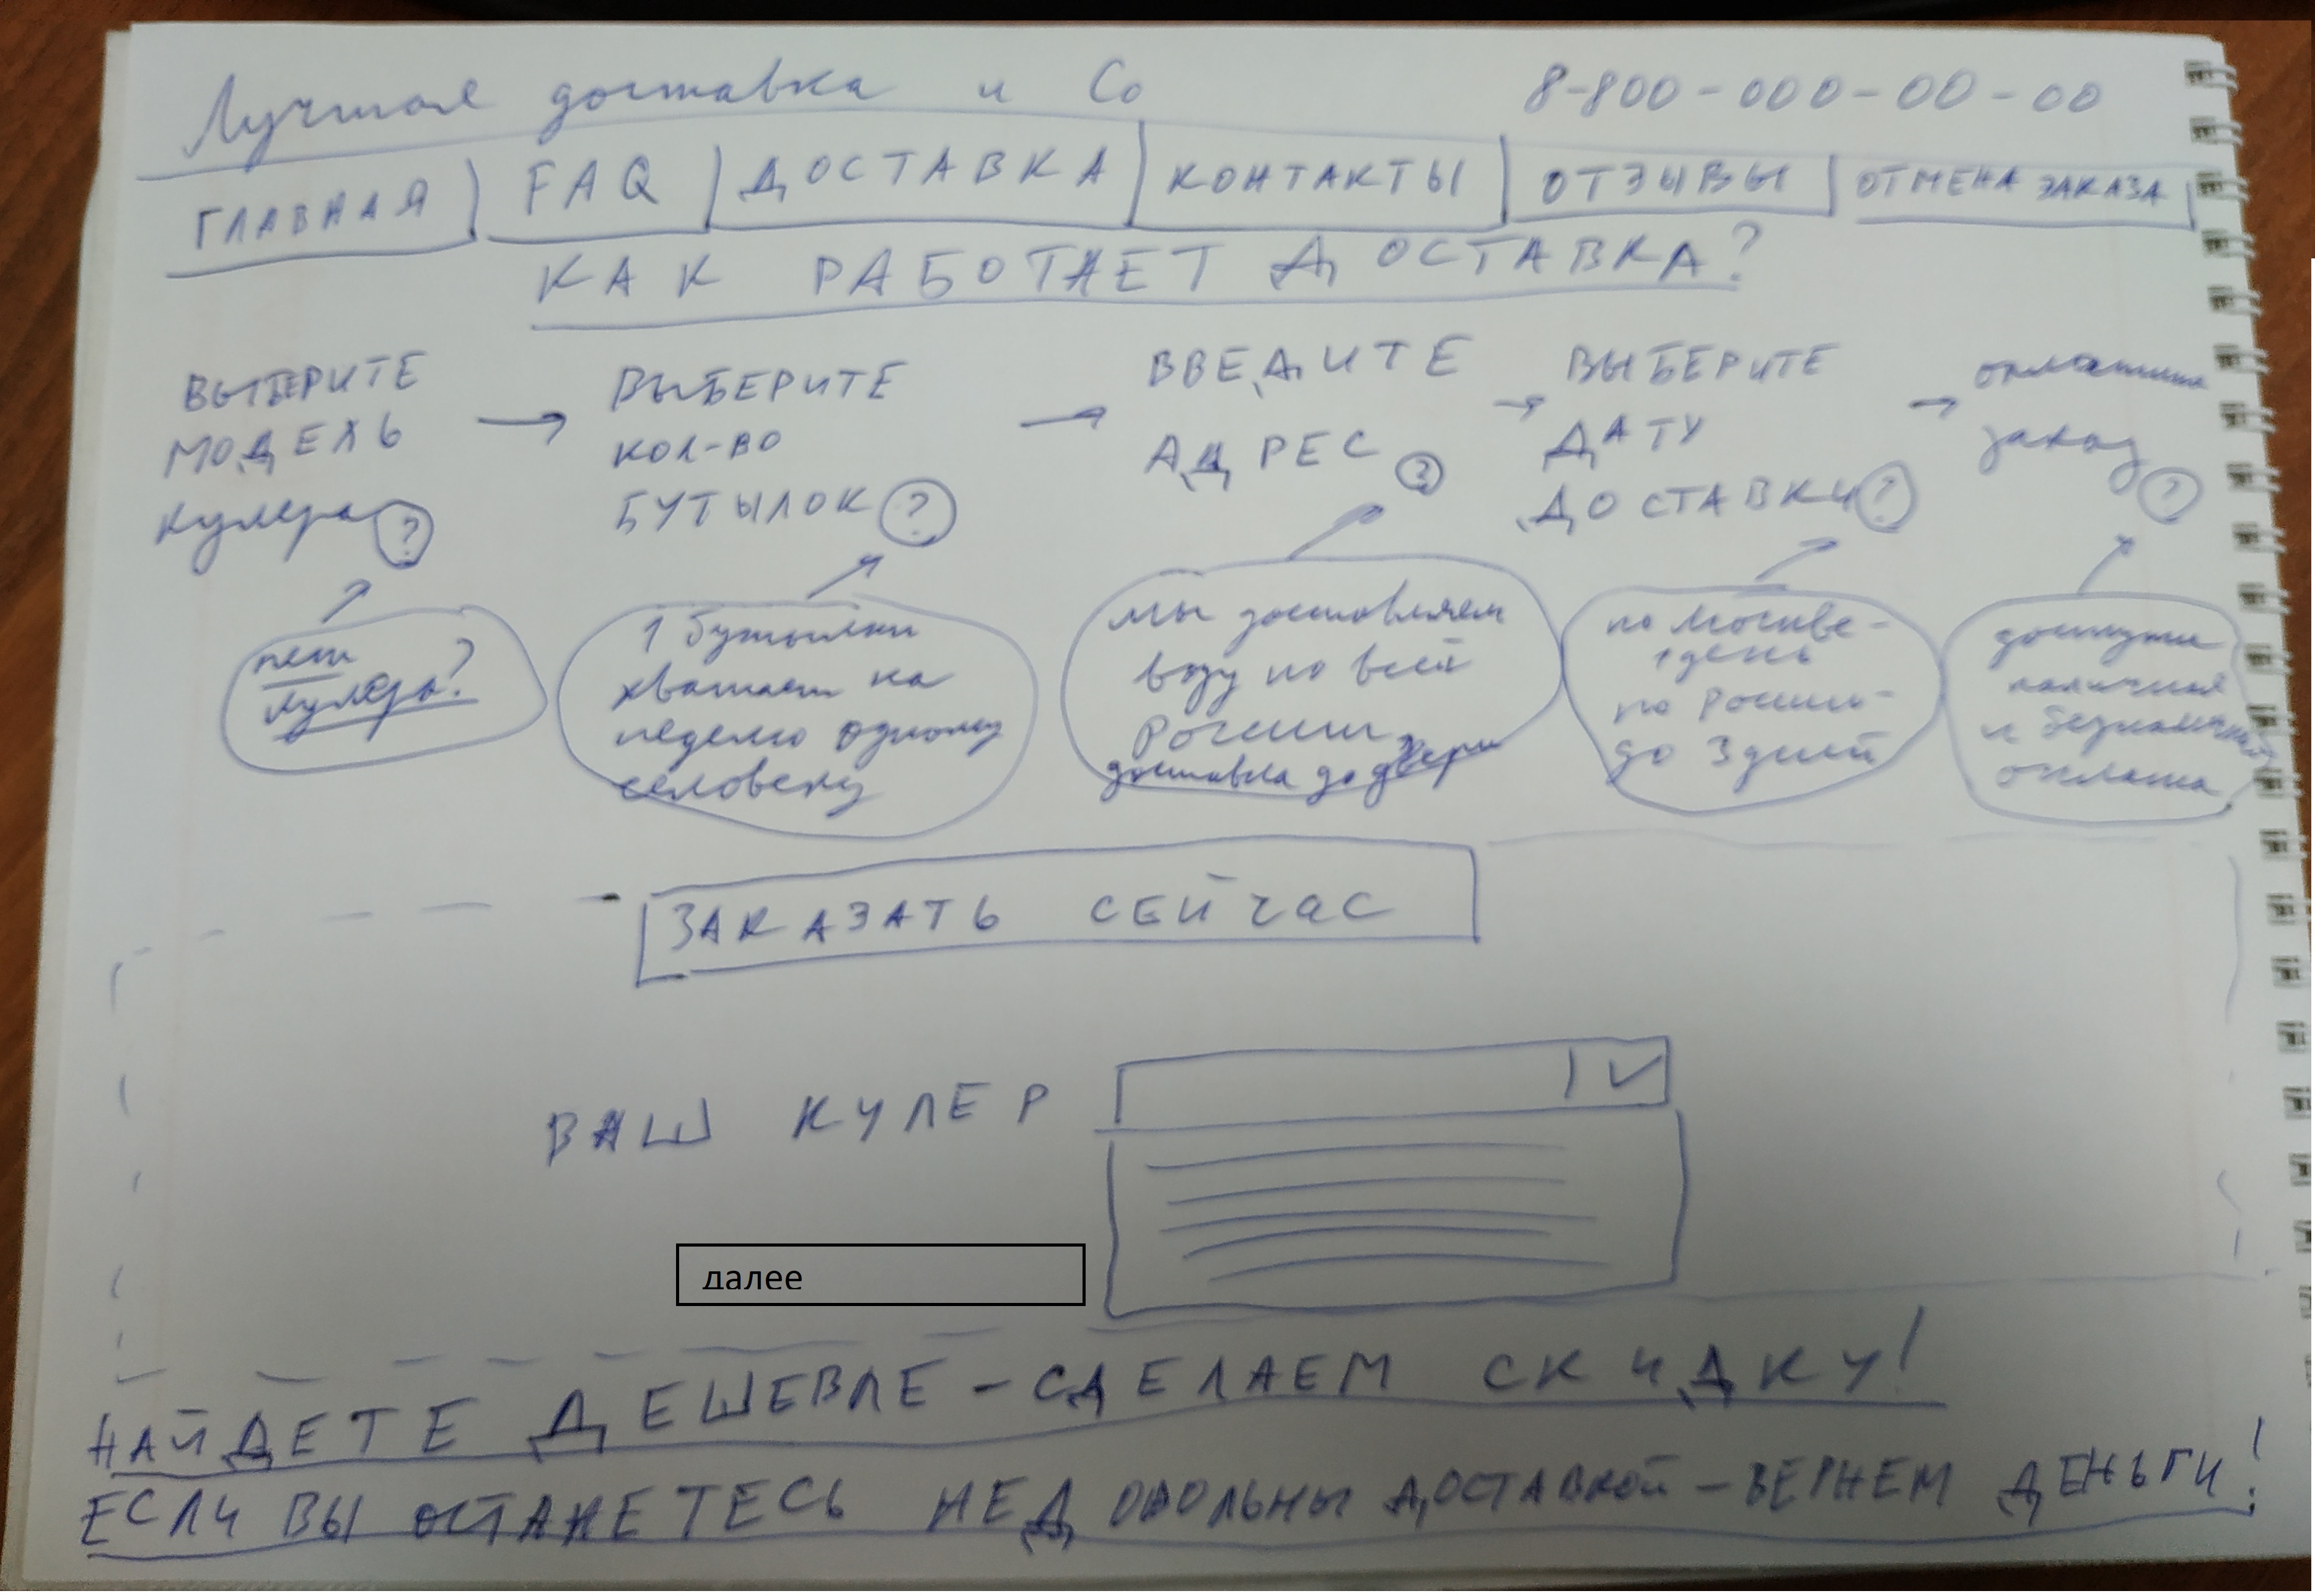 Лучшая доставка и Co
8-800-000-00-00
ГЛАВНАЯ
FAQ
ДОСТАВКА
КОНТАКТЫ
ОТЗЫВЫ
ОТМЕНА ЗАКАЗА
КАК РАБОТАЕТ ДОСТАВКА?
ВЫБЕРИТЕ
МОДЕЛЬ
кулера ?
ВЫБЕРИТЕ
КОЛ-ВО
БУТЫЛОК ?
ВВЕДИТЕ
АДРЕС ?
ВЫБЕРИТЕ
ДАТУ
ДОСТАВКИ ?
оплатите
заказ
?
нет
кулера?
1 бутылки
хватает на
неделю одному
человеку
мы доставляем
воду по всей
России
доставка до двери
по Москве -
1 день
по России -
до 3 дней
доступна
наличная
и безналичная
оплата
ЗАКАЗАТЬ СЕЙЧАС
ВАШ КУЛЕР
далее
НАЙДЕТЕ ДЕШЕВЛЕ - СДЕЛАЕМ СКИДКУ!
ЕСЛИ ВЫ ОСТАНЕТЕСЬ НЕДОВОЛЬНЫ ДОСТАВКОЙ - ВЕРНЕМ ДЕНЬГИ!